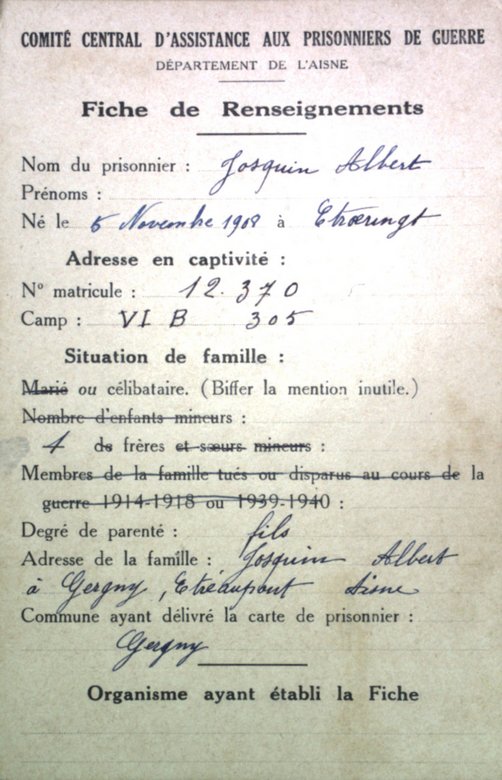 COMITÉ CENTRAL D'ASSISTANCE AUX PRISONNIERS DE GUERRE
DÉPARTEMENT DE L'AISNE
Fiche de Renseignements
Nom du prisonnier : Josquin Albert
Prénoms :
Né le 5 Novembre 1908 à Etrœungt
Adresse en captivité :
N° matricule : 12.370
Camp : VI B 305
Situation de famille :
Marié ou célibataire. (Biffer la mention inutile.)
Nombre d'enfants mineurs :
1 de frères et sœurs mineurs :
Membres de la famille tués ou disparus au cours de la
guerre 1914-1918 ou 1939-1940 :
Degré de parenté : fils
Adresse de la famille : Josquin Albert
à Gergny, Etréaupont Aisne
Commune ayant délivré la carte de prisonnier :
Gergny
Organisme ayant établi la Fiche